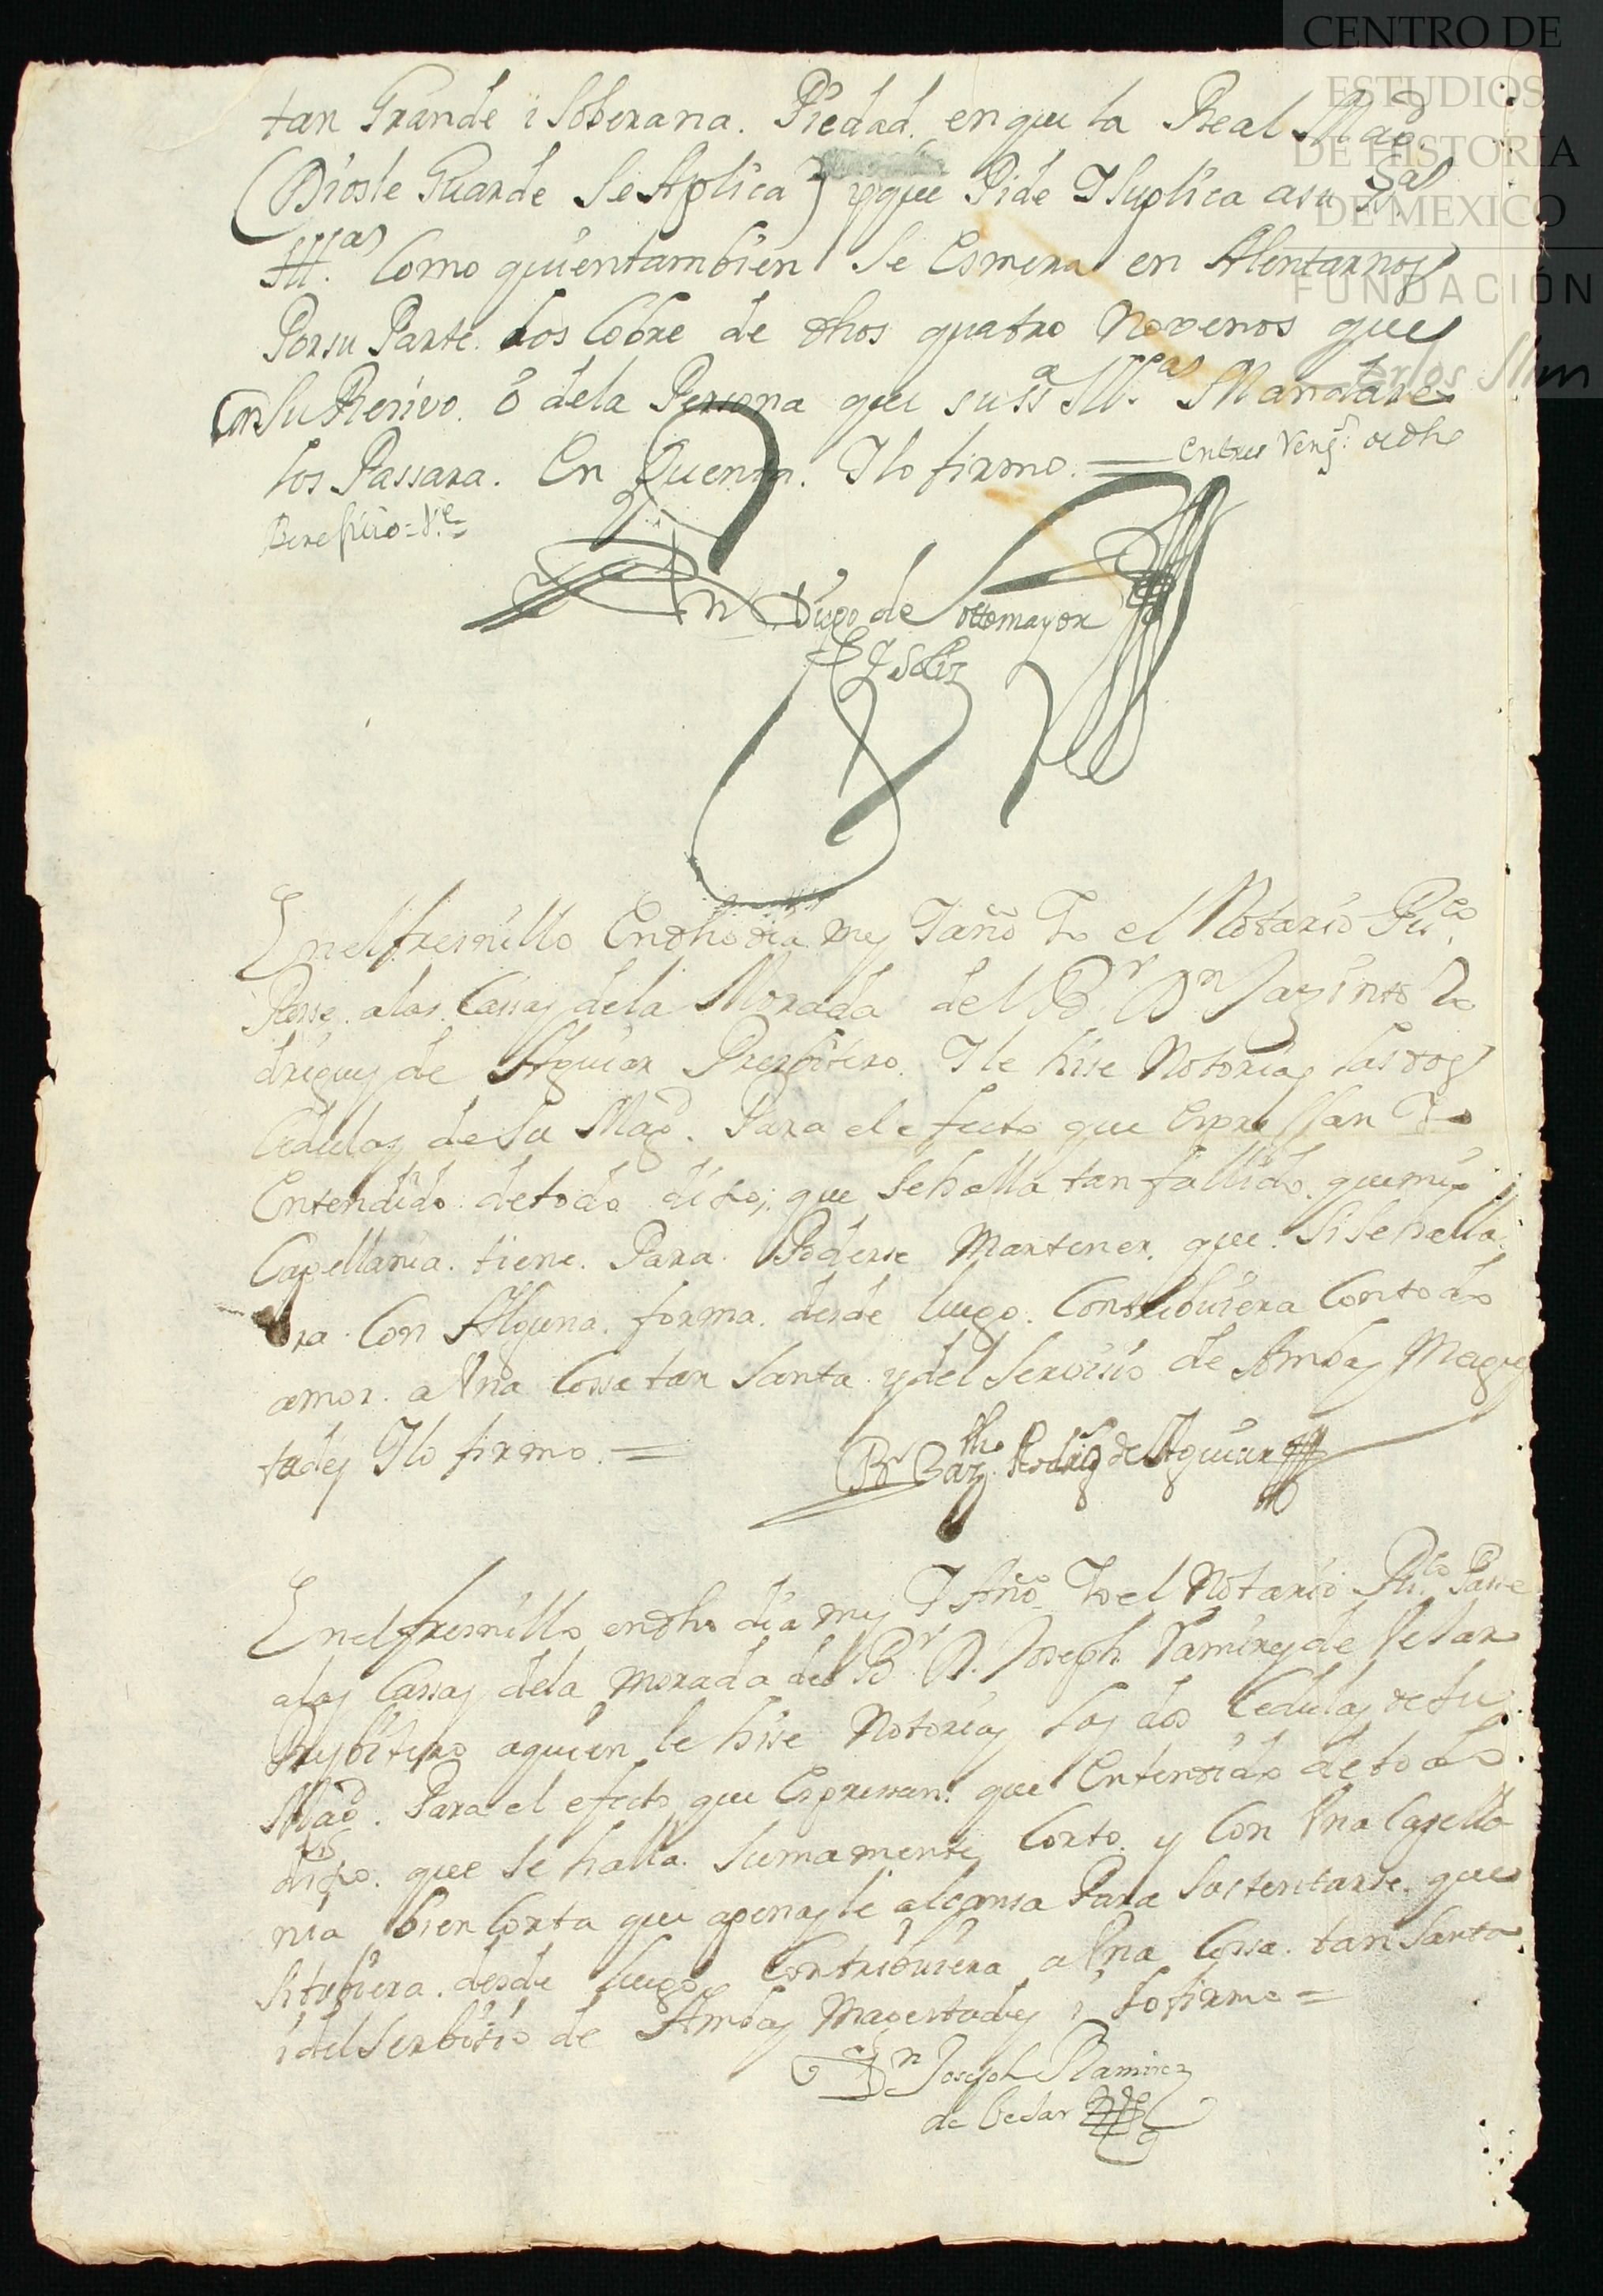 CENTRO DE
ESTUDIOS
DE HISTORIA
DE MEXICO
FUNDACIÓN
Carlos Slim
tan Grande i Soberana. Piedad. en que la Real Magd.
(Dios le Guarde Se Aplica) y que Pide Y Suplica a su Sa
Illma Como quien tambien Se Esmera en Alentarnos
Por su Parte. los Cobre de dhos quatro Novenos que
Con Su Recivo. ô de la Persona que su Sa Illma Mandare
los Passara. En Quenta. Y lo firmo. = entre Reng.s de dho
Beneficio = Ve =
Dn Diego de Sottomayor
Y Soliz
En el fresnillo En dho dia mes Y año Yo el Notario Puco
Passe. a las. Cassas de la Morada del Br Dn Jazinto Ro
drigues de Aguiar Prezbitero. Y le hise Notorias las dos
Cedulas de Su Magd. Para el efecto que Expressan Y
Entendido de todo dixo, que Se halla tan fallido que
Capellania. tiene. Para. Poderse Mantener. que. Si Se halla
ra. Con Alguna. forma. desde luego. Contribuiera Con todo
amor. a Vna Cossa tan Santa y del Servisio de Ambas Mages
tades Y lo firmo. =
Br Jazto Rodrigz de Aguiar
En el fresnillo en dho dia mes Y Año Yo el Notario Puco Passe
a las Cassas de la morada del Br D. Joseph Ramires de Vesar
Presbitero a quien le hise Notorias las dos Cedulas de Su
Magd. Para el efecto que Expressan. que Entendido de todo
dixo. que Se halla. Sumamente Corto. y Con Vna Capella
nia bien Corta que apenas le alcansa Para Sustentarse. que
Si tubiera. desde luego Contribuiera a Vna Cossa. tan Santa
i del Serbisio de Ambas Magestades i lo firmo =
Dn Joseph Ramirez
de Besar